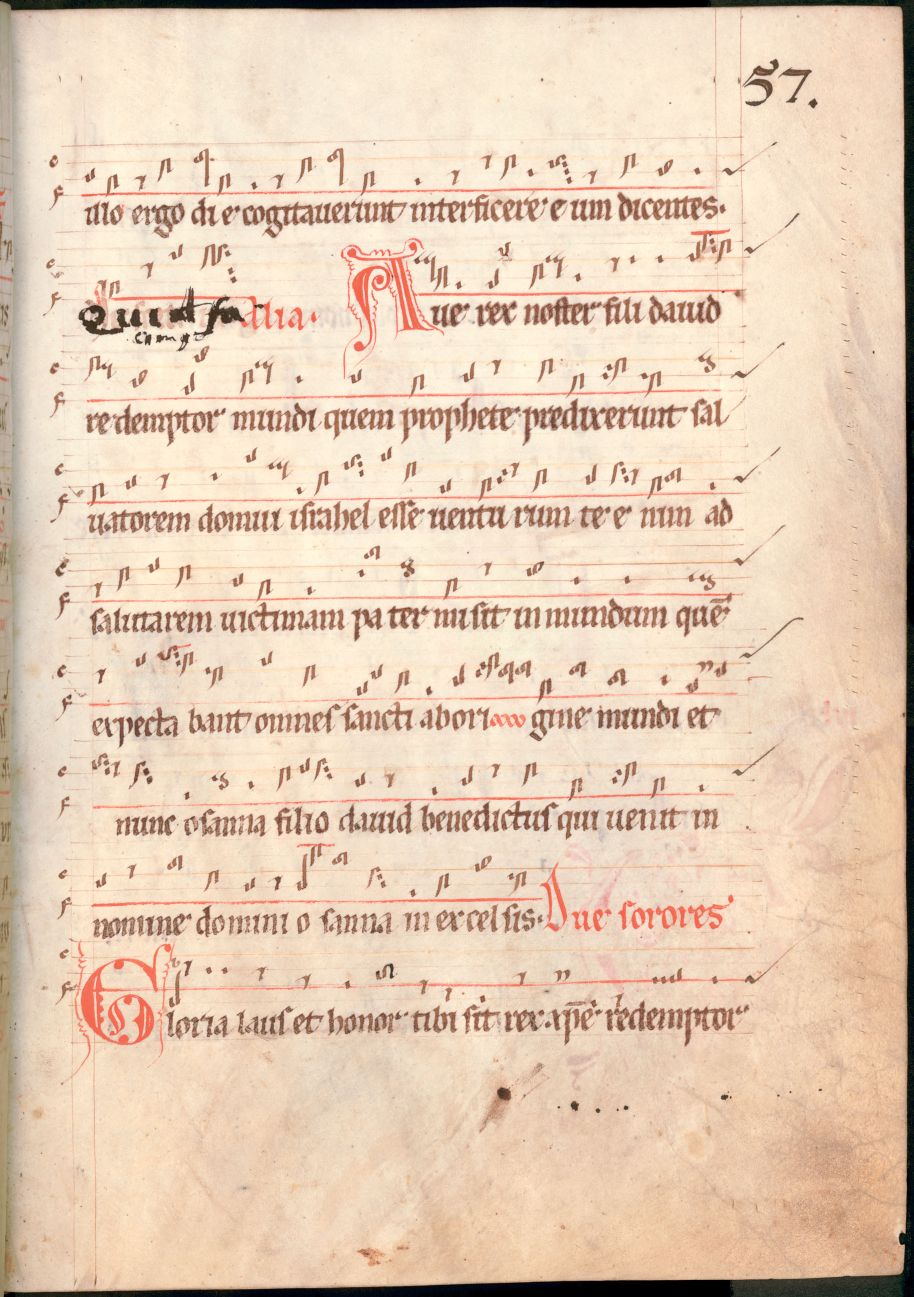 57.
illo ergo die cogitaverunt interficere eum dicentes.
alia. Aue rex noster fili dauid
redemptor mundi quem prophete predixerunt sal
uatorem domui israhel esse uenturum te enim ad
salutarem uictimam pater misit in mundum quē
expectabant omnes sancti ab origine mundi et
nunc osanna filio dauid benedictus qui uenit in
nomine domini osanna in excelsis. Due sorores
Gloria laus et honor tibi sit rex xpē redemptor